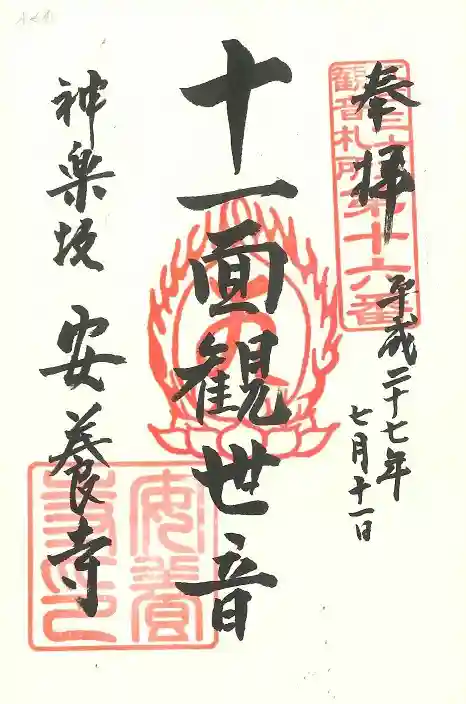 奉拝
平成二十七年
七月十一日
十一面観世音
神楽坂 安養寺
観音札所第十六番
安養寺印